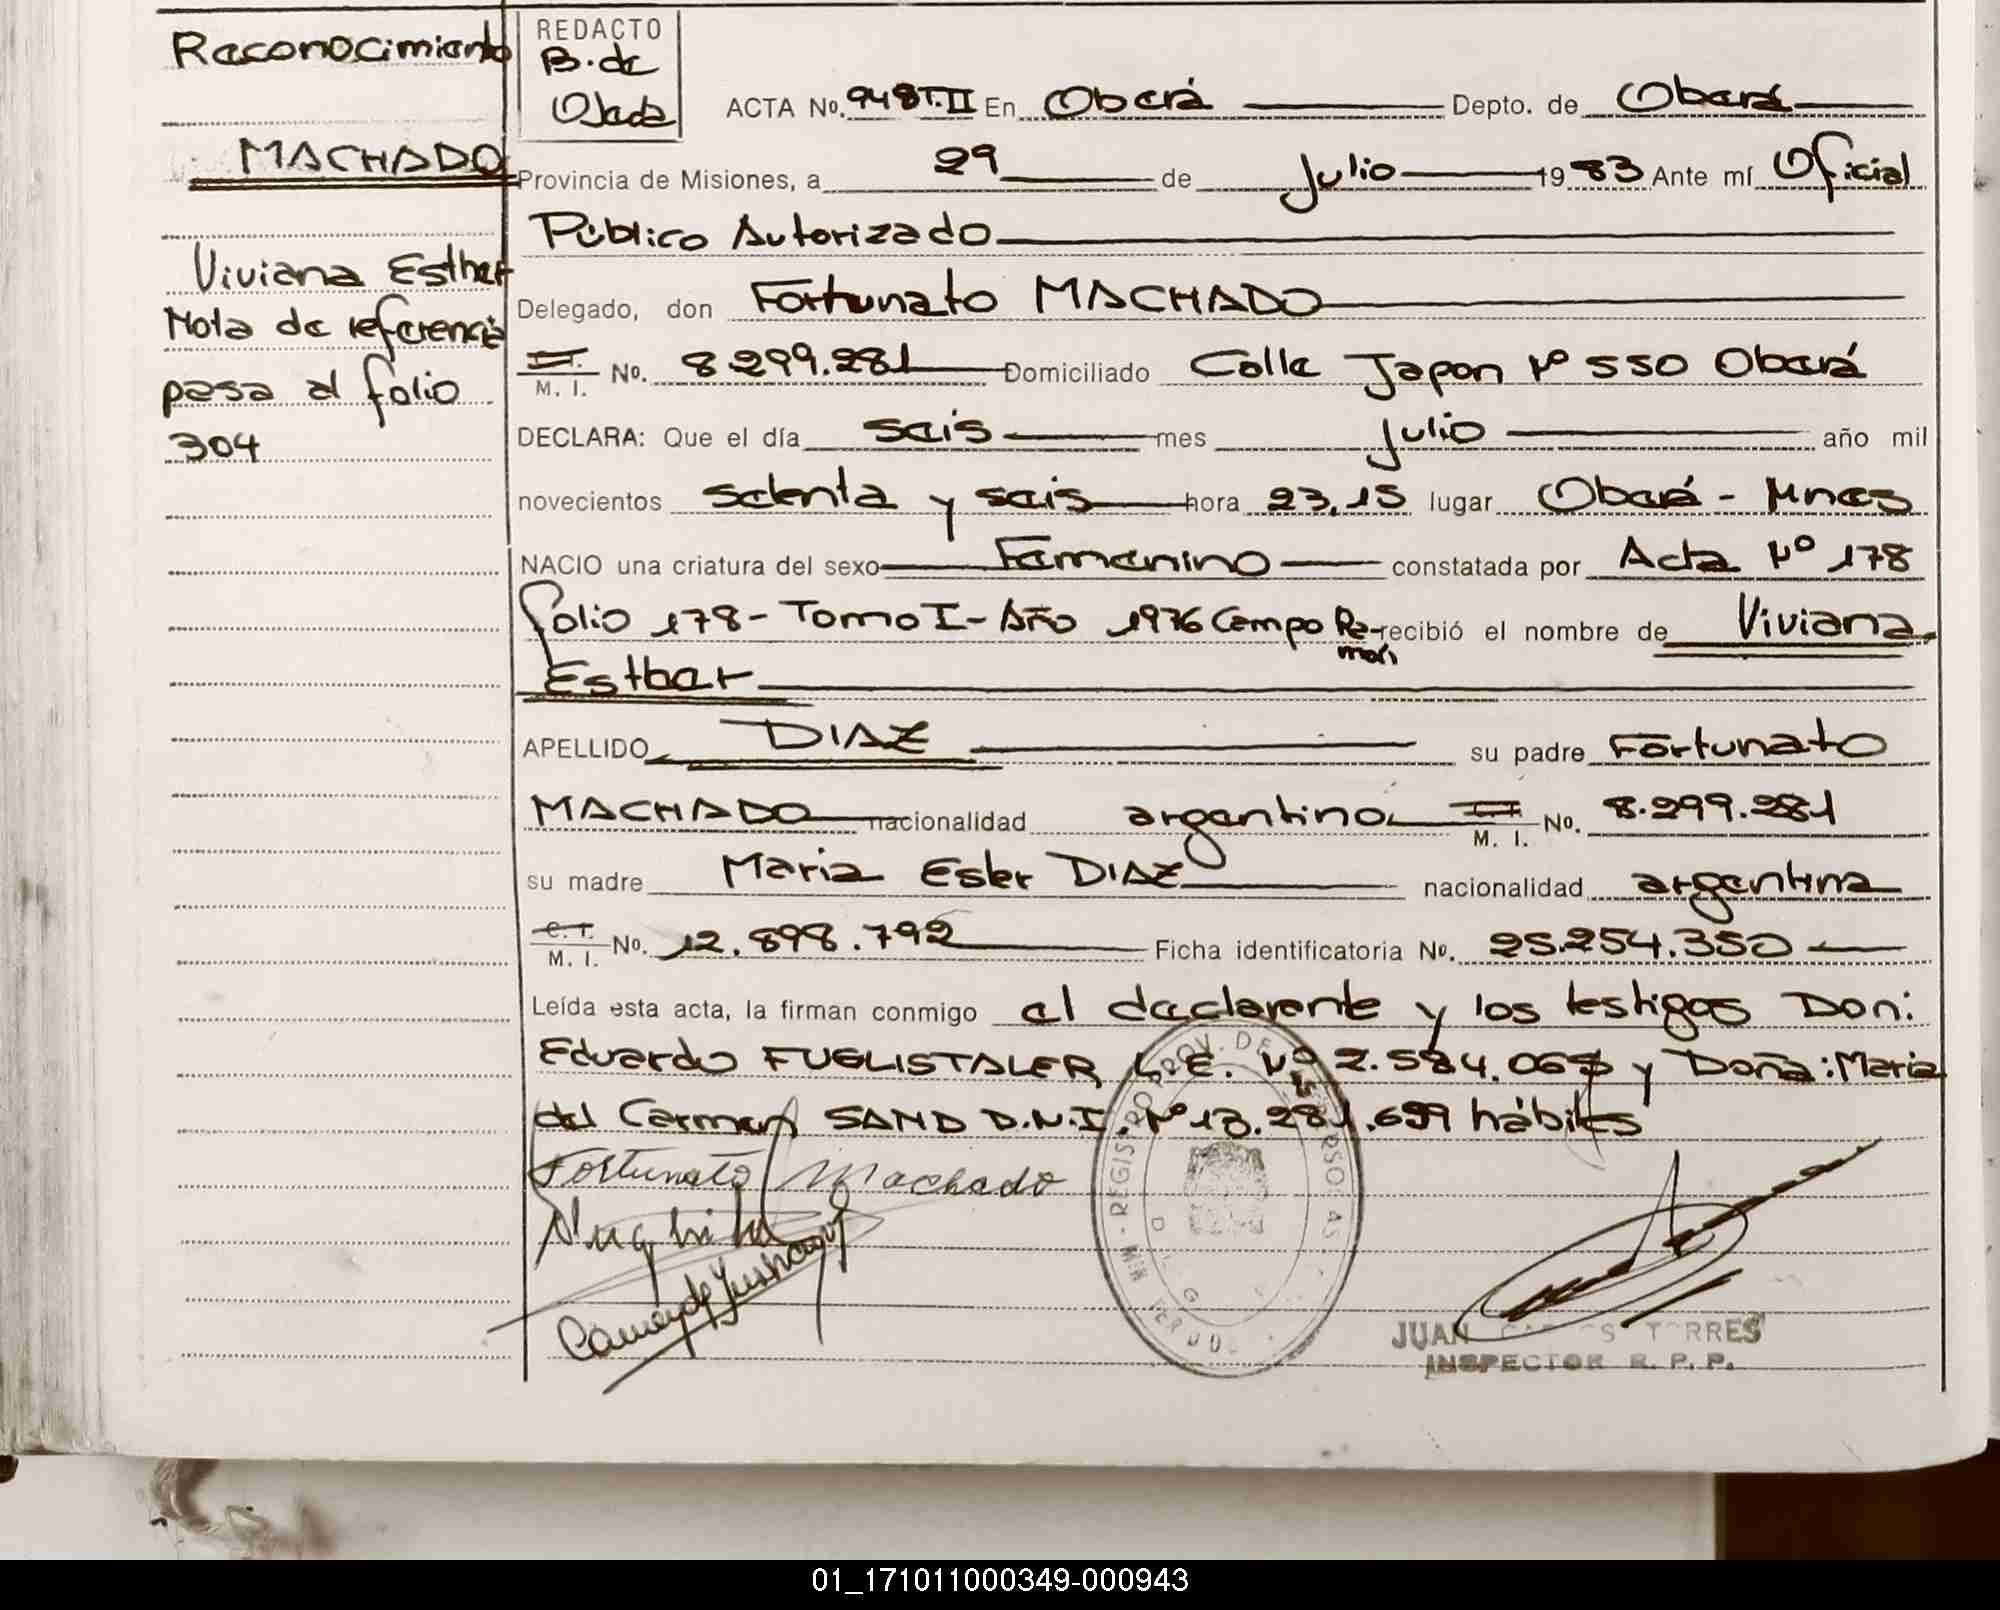 Reconocimiento
MACHADO
Viviana Esther
Nota de referencia
pasa al folio
304
REDACTO
B. de
Ojeda
ACTA No. 948 T.II En Oberá Depto. de Oberá
Provincia de Misiones, a 29 de Julio 1983 Ante mí Oficial
Público Autorizado
Delegado, don Fortunato MACHADO
M. I. No. 8.299.281 Domiciliado Calle Japon Nº 550 Oberá
DECLARA: Que el día seis mes julio año mil
novecientos setenta y seis hora 23,15 lugar Oberá - Mnes
NACIO una criatura del sexo Femenino constatada por Acta Nº 178
folio 178 - Tomo I - Año 1976 Campo Ra- recibió el nombre de Viviana
món
Esther
APELLIDO DIAZ su padre Fortunato
MACHADO nacionalidad argentino M. I. No. 8.299.281
su madre Maria Ester DIAZ nacionalidad argentina
C. I. M. I. No. 12.898.792 Ficha identificatoria No. 25.254.350
Leída esta acta, la firman conmigo el declarante y los testigos Don:
Eduardo FUGLISTALER L.E. Nº 2.584.06 y Doña: Maria
del Carmen SAND D.N.I. Nº 13.281.699 hábiles
Fortunato Machado
REGISTRO PROV. DE
JUAN CARLOS TORRES
INSPECTOR R. P. P.
01_171011000349-000943